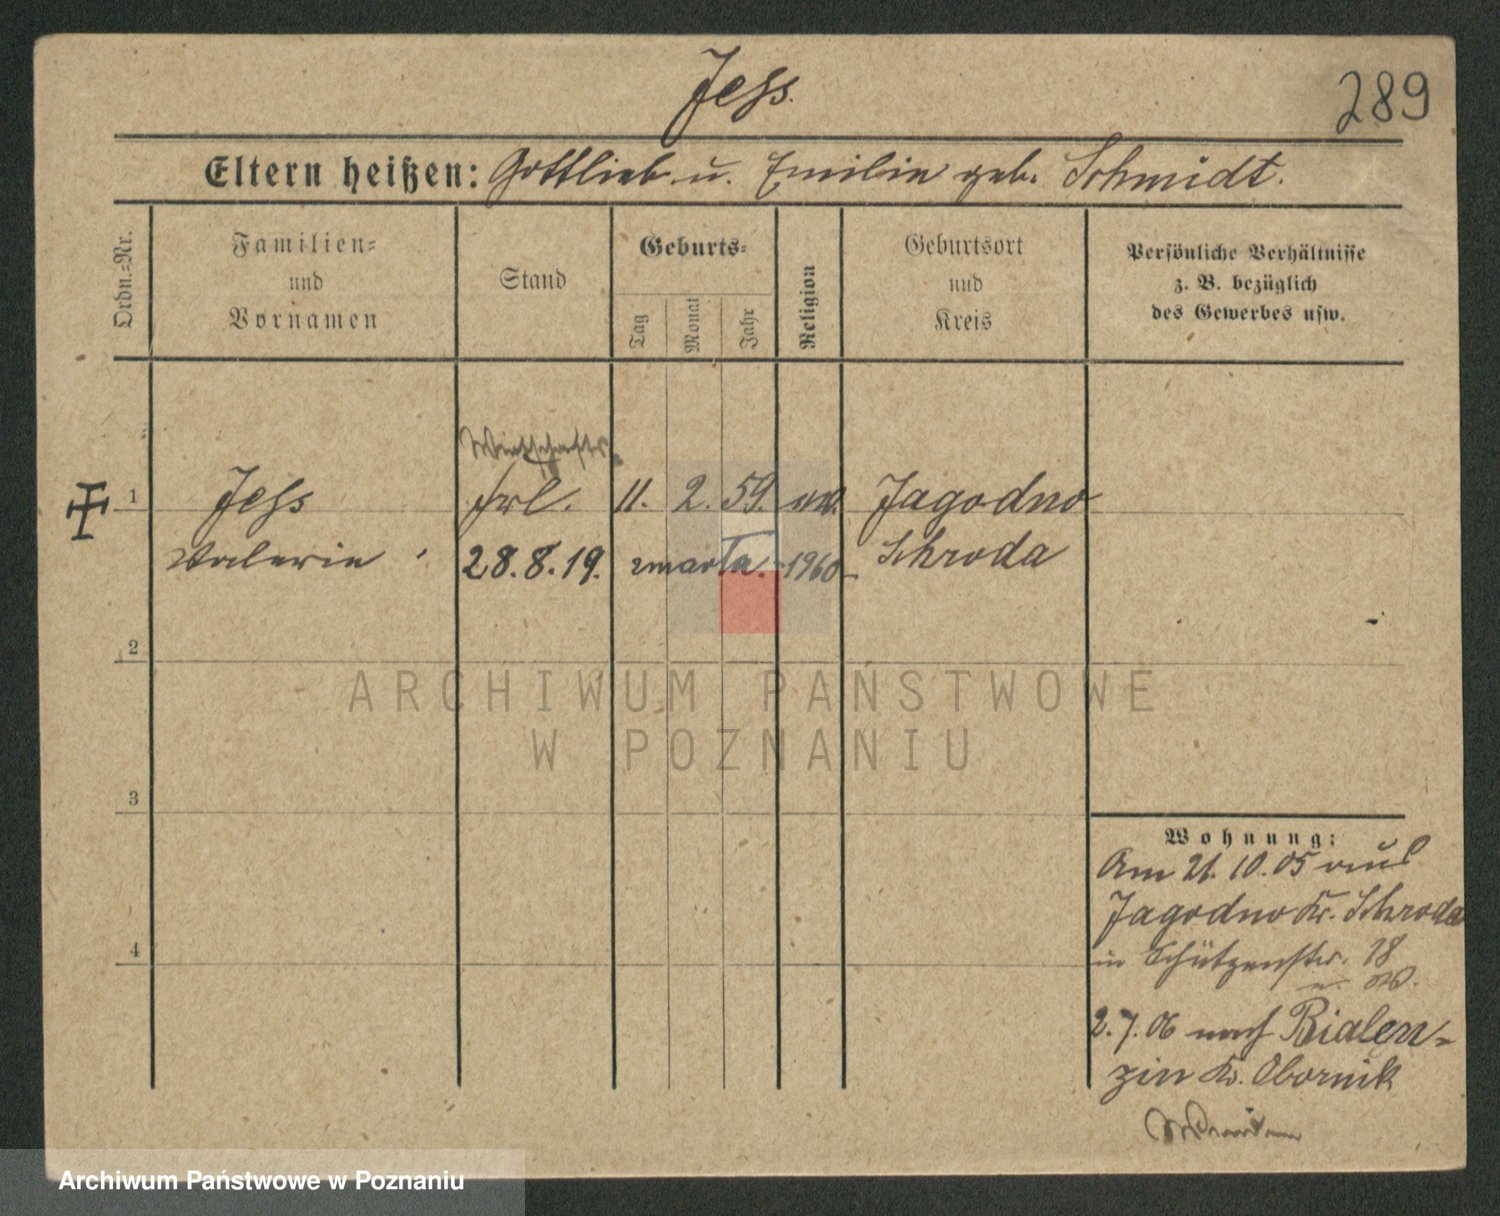 Jess.
289
Eltern heißen: Gottlieb u. Emilie geb. Schmidt.
Ordn.=Nr.
Familien=
und
Vornamen
Stand
Geburts=
Tag
Monat
Jahr
Religion
Geburtsort
und
Kreis
Persönliche Verhältnisse
z. B. bezüglich
des Gewerbes usw.
Wirtschafts
1 Jess Frl. 11. 2. 59. ev. Jagodno
Valerie 28.8.19. zmarła. -1960- Schroda
2
3
4
Wohnung:
Am 21.10.05 aus
Jagodno Kr. Schroda
in Schützenstr. 18
2.7.06 nach Bialen-
zin Kr. Obornik
ARCHIWUM PAŃSTWOWE
W POZNANIU
Archiwum Państwowe w Poznaniu